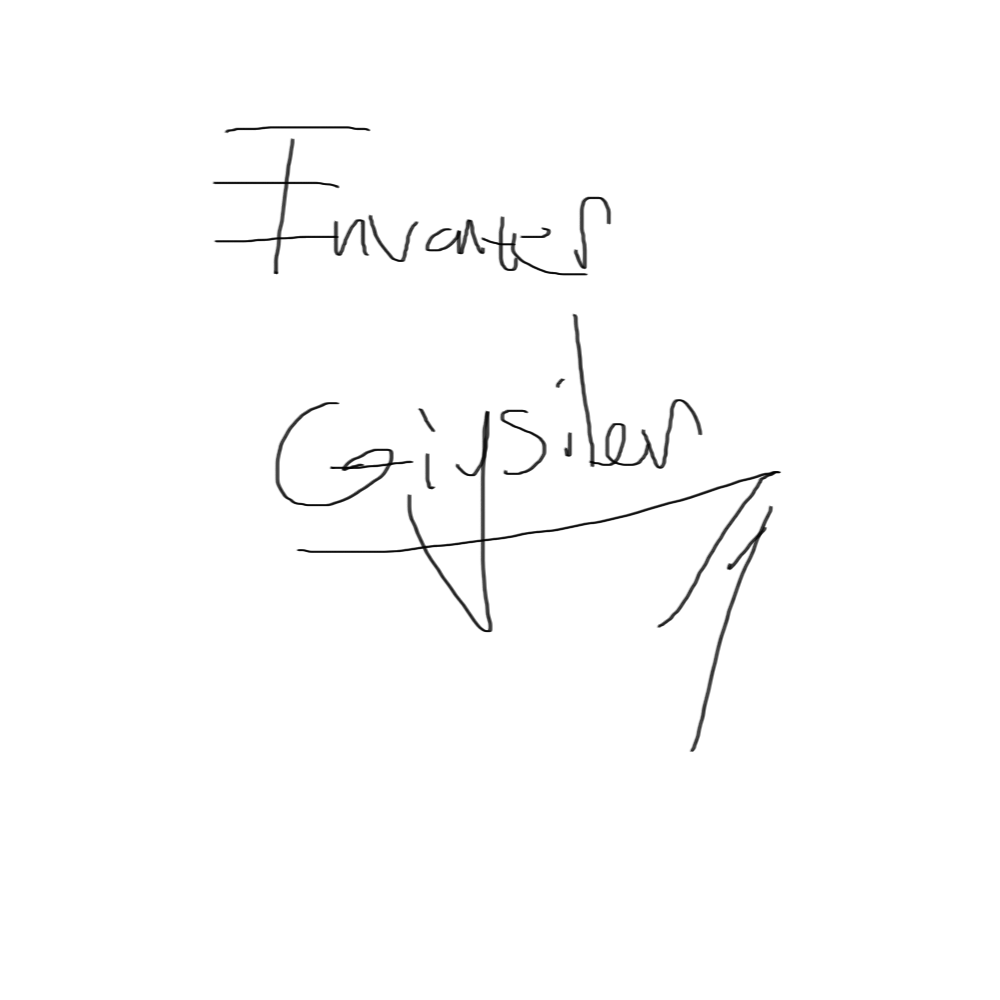 Inventer
Giysiler